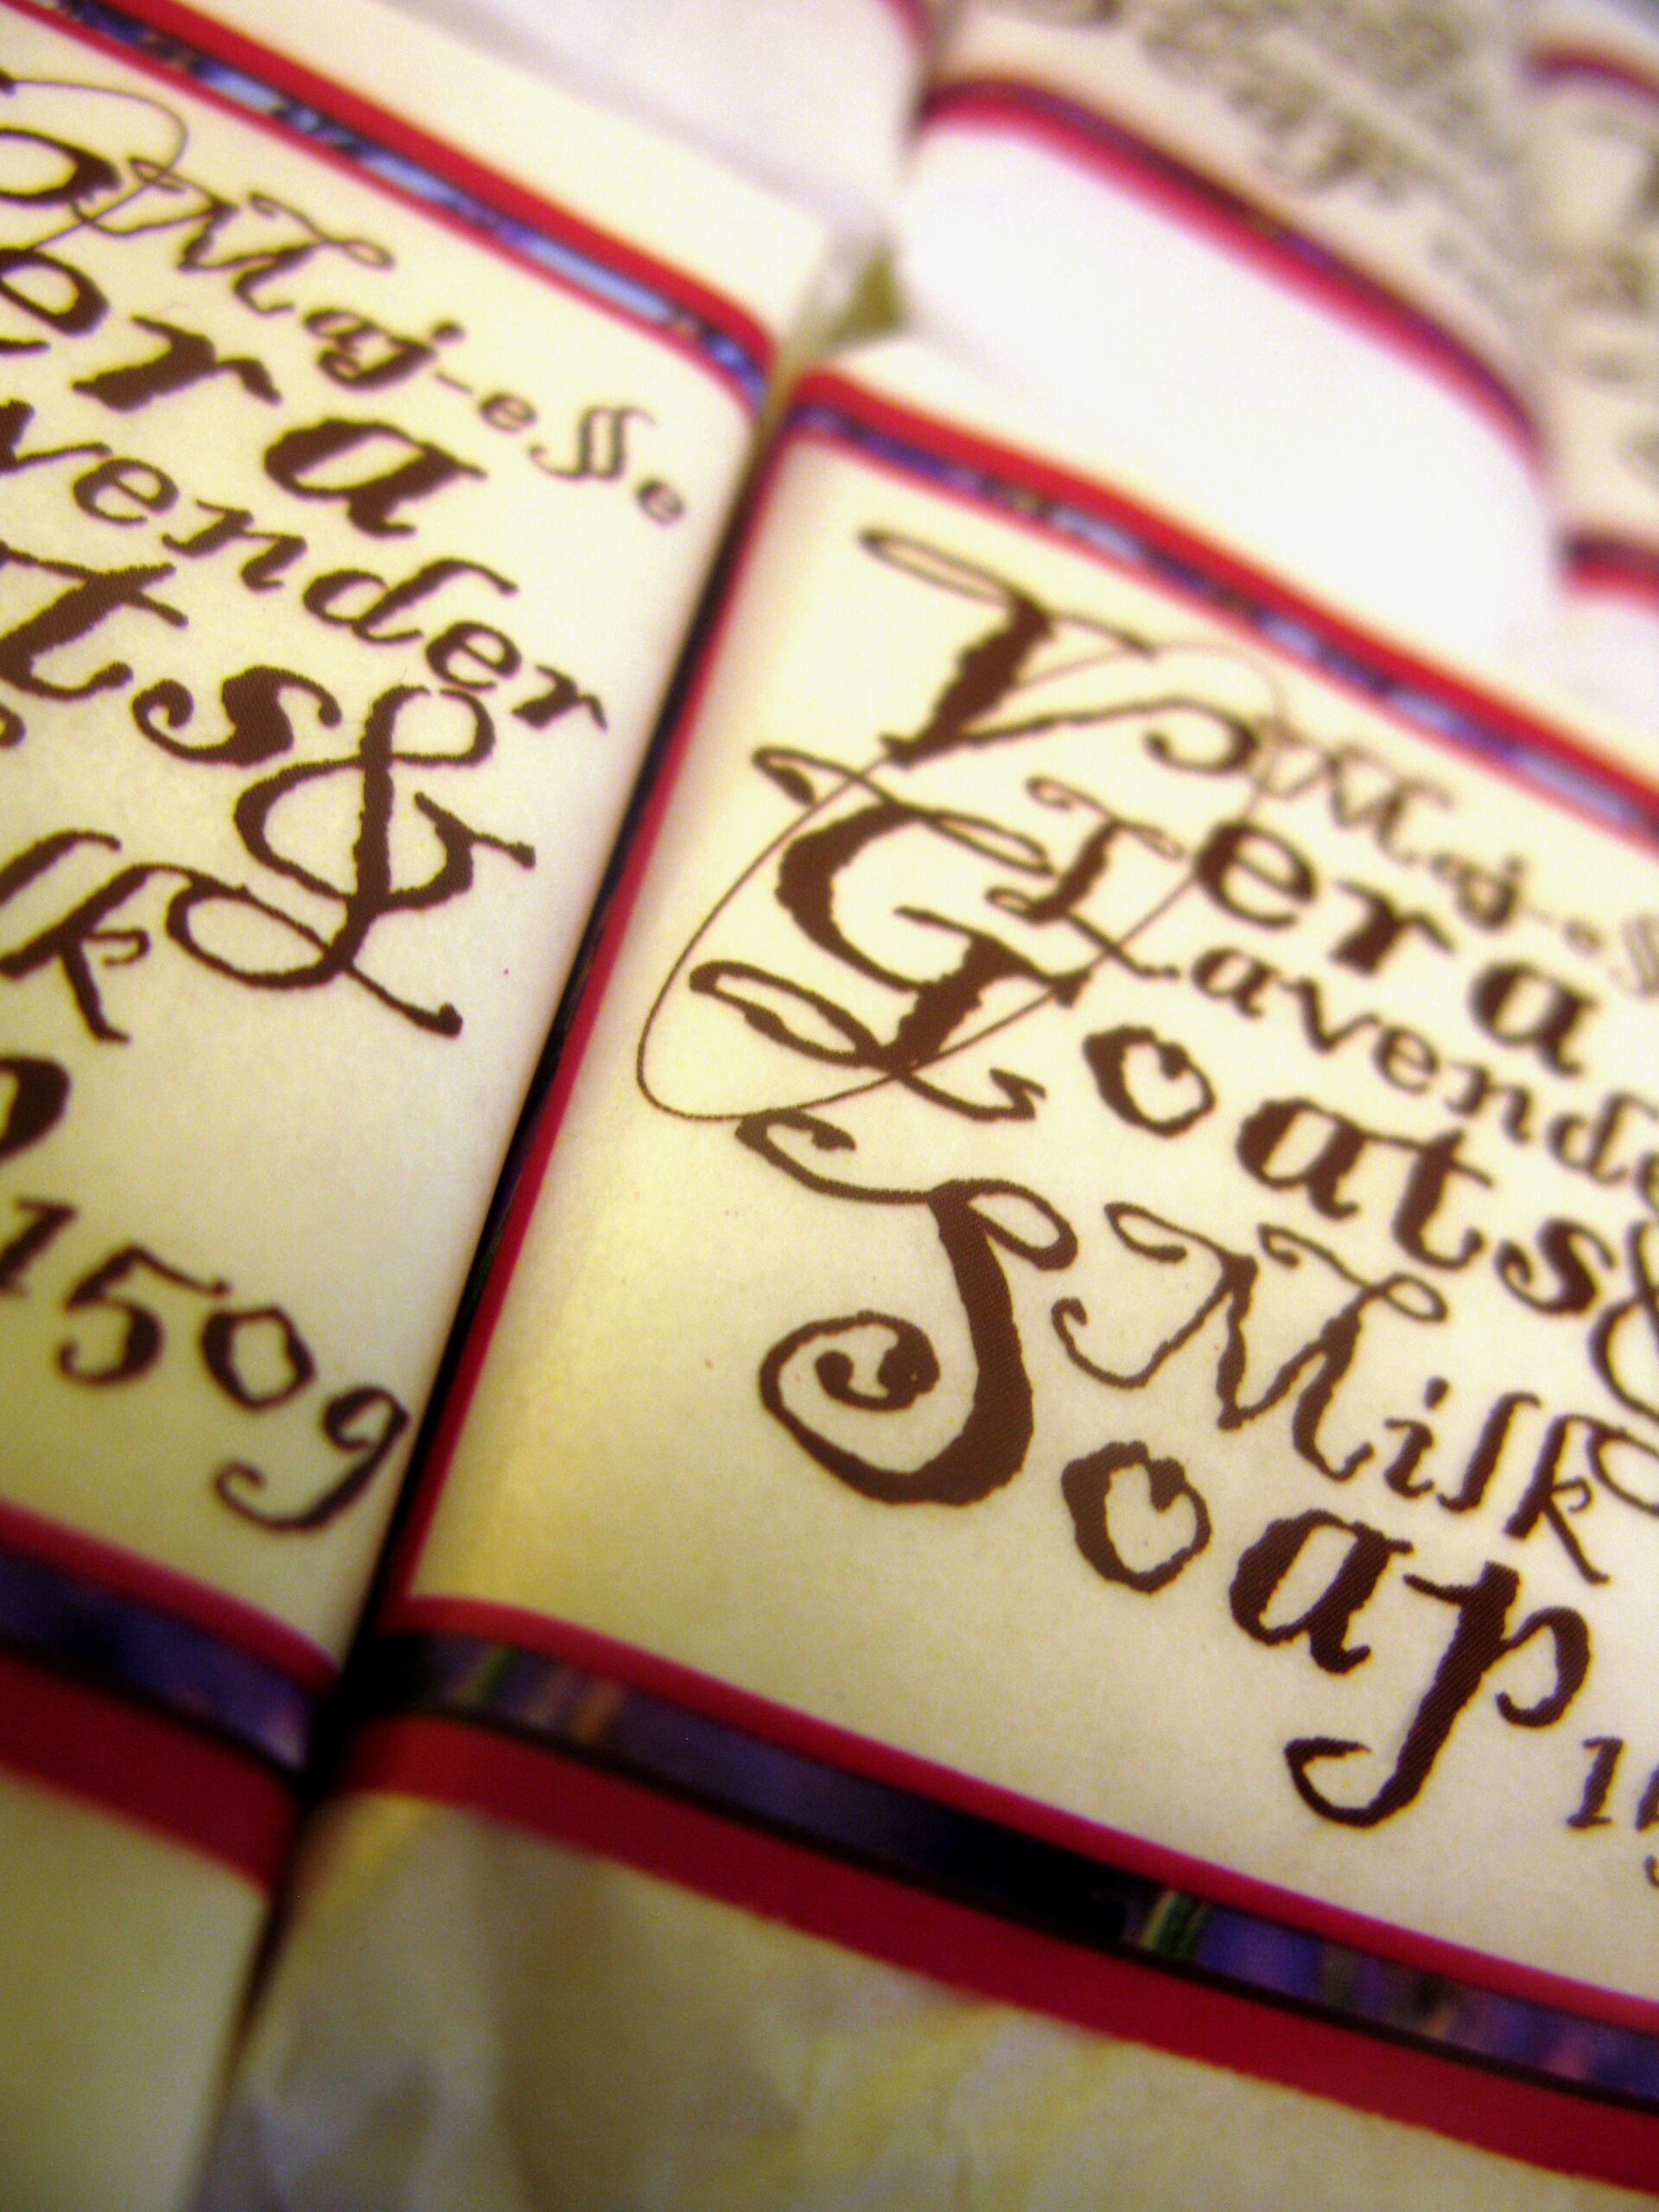 Maj-eſſe
era
vender
ts &
lk
150g
Maj-eſ
Vera
Lavende
Goats &
Milk
Soap